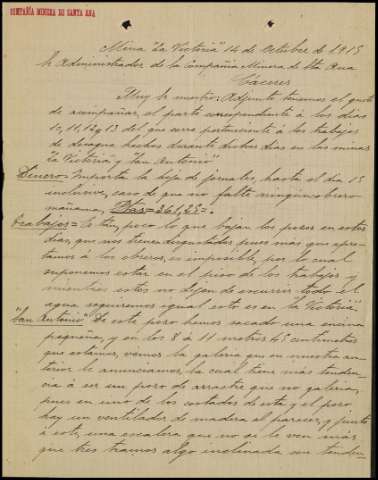 COMPAÑIA MINERA DE SANTA ANA
Mina "La Victoria" 14 de Octubre de 1915
Sr Administrador de la Compañia Minera de Sta Ana
Cáceres
Muy Sr nuestro: Adjunto tenemos el gusto
de acompañar, el parte correspondiente á los dias
10, 11, 12 y 13 del que corre perteneciente á los trabajos
de desague hechos durante dichos dias en las minas
"La Victoria y San Antonio"
Dinero = Importa la hoja de jornales, hasta el dia 15
inclusive, caso de que no falte ningún obrero
mañana, Ptas = 261,23 =.
Trabajos = Es tan poco lo que bajan los pozos en estos
dias, que nos tienen disgustados pues más que apre-
tamos á los obreros, es imposible, por lo cual
suponemos estar en el piso de los trabajos y
mientras estos no dejen de escurrir todo el
agua seguiremos igual esto es en "La Victoria".
"San Antonio" De este pozo hemos sacado una encina
pequeña, y en los 8 á 11 metros 45 centimetros
que estamos, vemos la galeria que en nuestra an-
terior le anunciamos, la cual tiene más tenden-
cia á ser un pozo de arrastre que no galeria,
pues en uno de los costados de esta y el pozo,
hay un ventilador de madera al parecer, y junto
á este, una escalera que no se le ven más
que tres tramos algo inclinada en tenden-